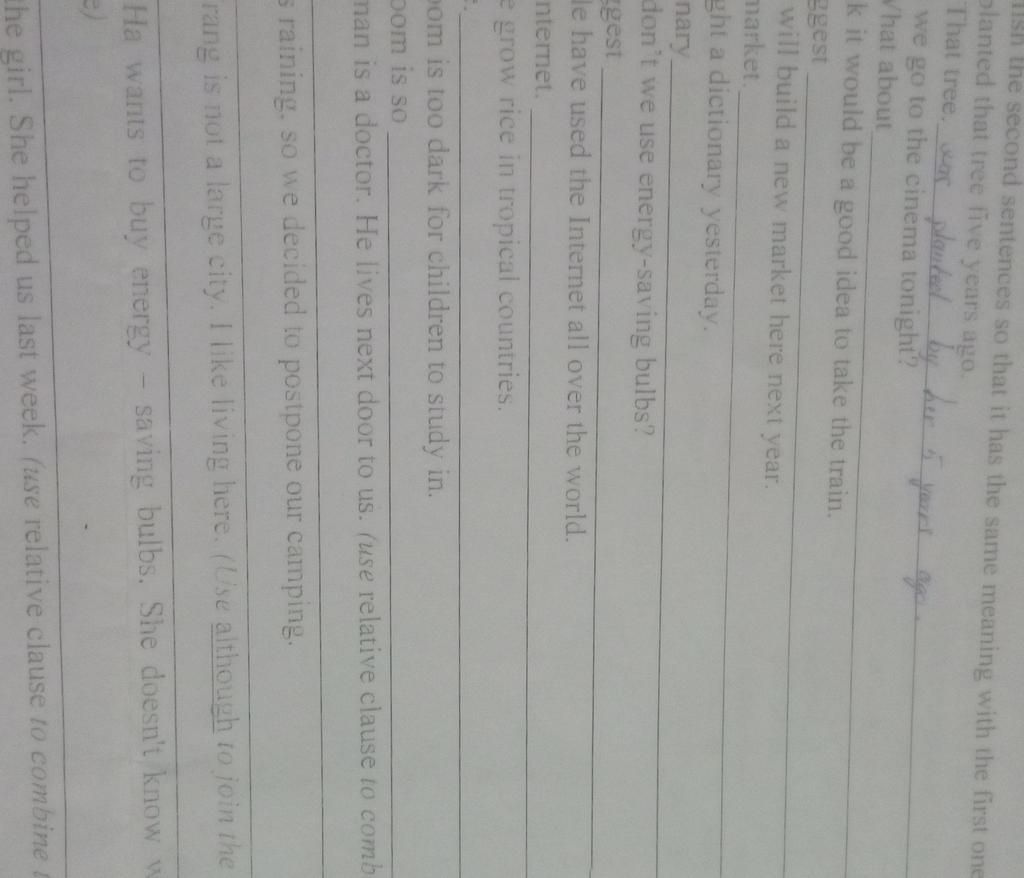 ish the second sentences so that it has the same meaning with the first one
planted that tree five years ago.
That tree. was planted by her 5 years ago.
we go to the cinema tonight?
What about
k it would be a good idea to take the train.
ggest
will build a new market here next year.
market.
ght a dictionary yesterday.
nary
don't we use energy-saving bulbs?
ggest
le have used the Internet all over the world.
nternet.
e grow rice in tropical countries.
oom is too dark for children to study in.
oom is so
man is a doctor. He lives next door to us. (use relative clause to comb
s raining, so we decided to postpone our camping.
rang is not a large city. I like living here. (Use although to join the
Ha wants to buy energy – saving bulbs. She doesn't know w
e)
the girl. She helped us last week. (use relative clause to combine t